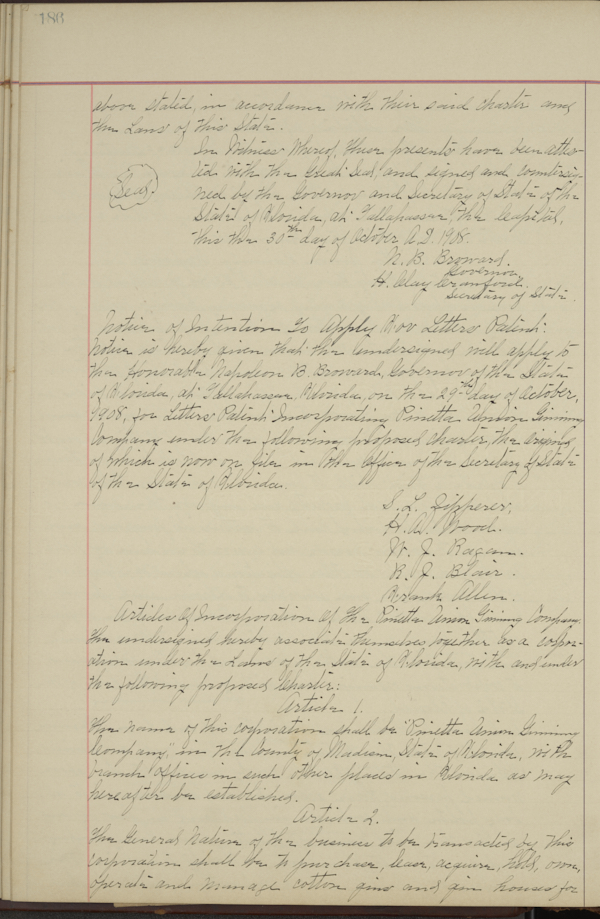 186
above stated, in accordance with their said charter and
the Laws of this State.
In Witness Whereof, these presents have been attes-
ted with the Great Seal, and signed and countersig-
ned by the Governor and Secretary of State of the
State of Florida, at Tallahassee, the Capital,
this the 30th day of October, A.D. 1908.
(Seal)
N. B. Broward.
Governor.
H. Clay Crawford.
Secretary of State.
Notice of Intention To Apply For Letters Patent.
Notice is hereby given that the undersigned will apply to
the honorable Napoleon B. Broward, Governor of the State
of Florida, at Tallahassee, Florida, on the 29th day of October,
1908, for Letters Patent Incorporating Pinetta Union Ginning
Company under the following proposed charter, the original
of which is now on file in the office of the Secretary of State
of the State of Florida.
S. L. Zipperer,
H. W. Wood.
W. J. Ragan.
R. J. Blair.
Frank Allen.
Articles of Incorporation of the Pinetta Union Ginning Company.
The undersigned hereby associate themselves together as a corpor-
ation under the Laws of the State of Florida, with and under
the following proposed Charter:
Article 1.
The name of this corporation shall be "Pinetta Union Ginning
Company," in the County of Madison, State of Florida, with
branch offices in such other places in Florida as may
hereafter be established.
Article 2.
The General Nature of the business to be transacted by this
corporation shall be to purchase, lease, acquire, hold, own,
operate and manage cotton gins and gin houses for